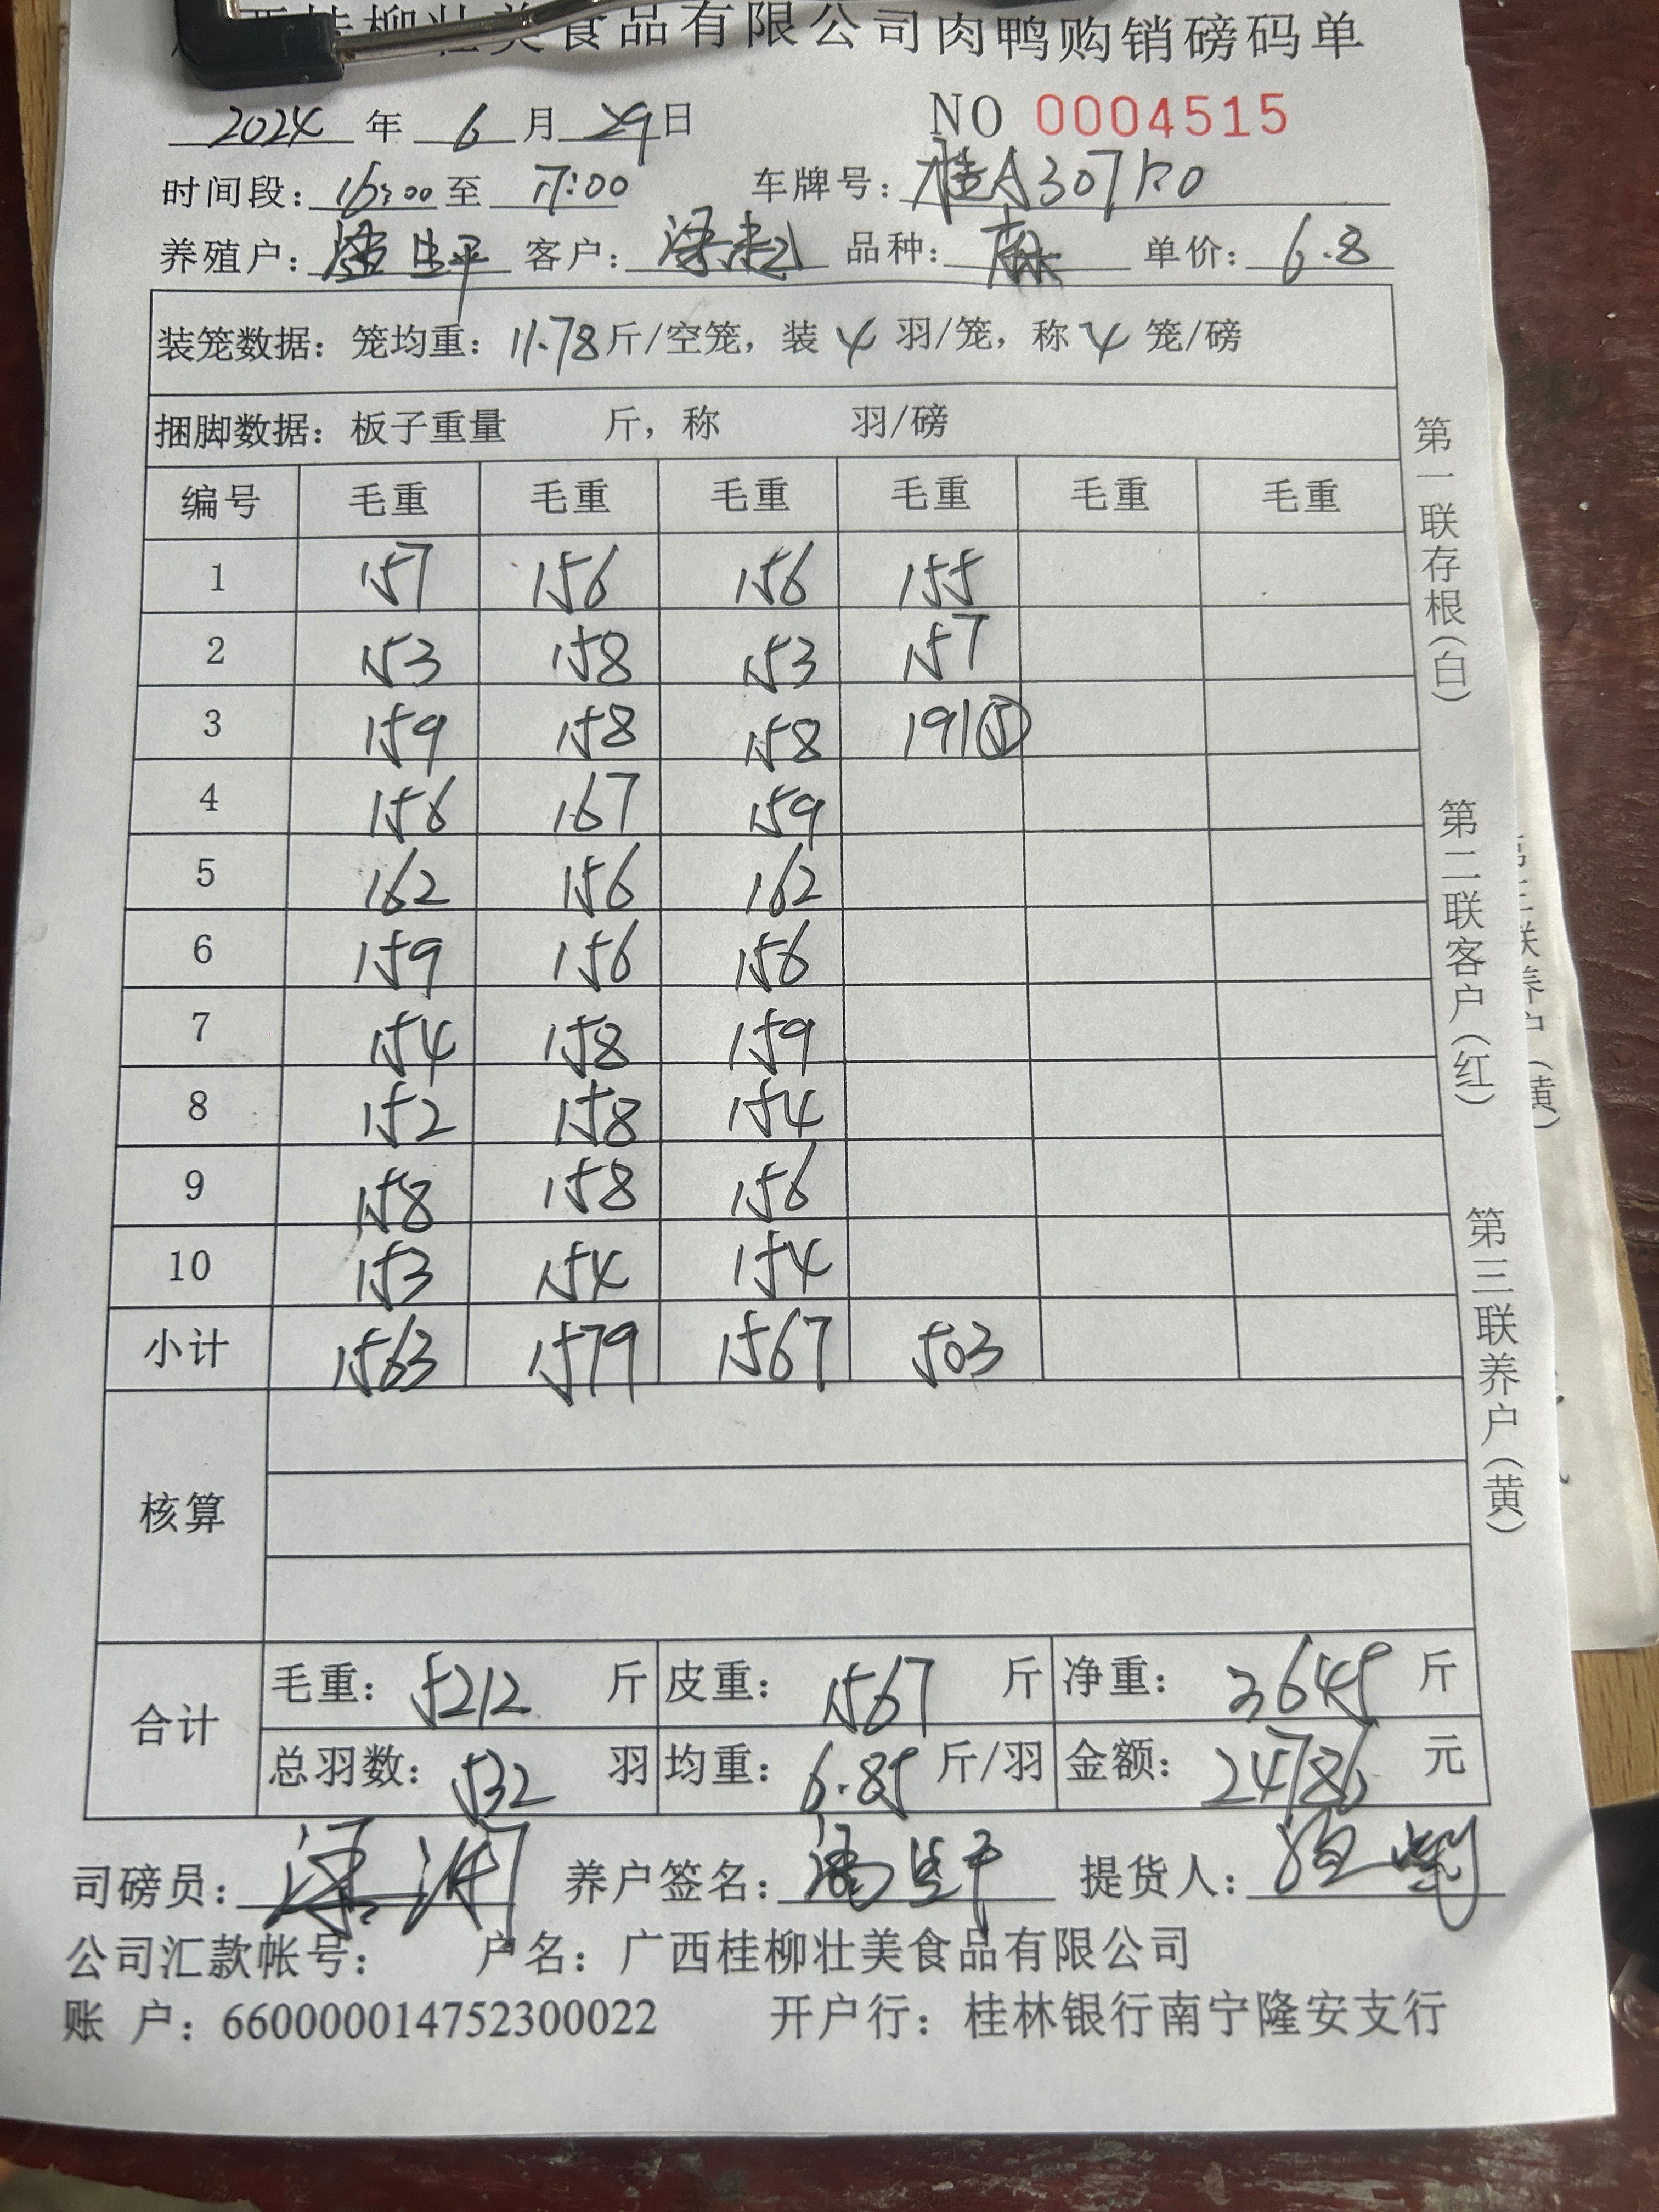 西桂柳壮美食品有限公司肉鸭购销磅码单
2024 年 6 月 29 日 NO 0004515
时间段: 16:00 至 17:00 车牌号: 桂A307R0
养殖户: 客户: 品种: 单价: 6.8
装笼数据: 笼均重: 11.78 斤/空笼, 装 4 羽/笼, 称 4 笼/磅
捆脚数据: 板子重量 斤, 称 羽/磅
编号 毛重 毛重 毛重 毛重 毛重 毛重
1 157 156 156 155
2 153 158 153 157
3 159 158 158 191⑤
4 156 167 159
5 162 156 162
6 159 156 156
7 154 158 159
8 152 158 154
9 158 158 156
10 153 154 154
小计 1563 1579 1567 503
核算
合计
毛重: 5212 斤 皮重: 1567 斤 净重: 3645 斤
总羽数: 532 羽 均重: 6.85 斤/羽 金额: 24786 元
司磅员: 养户签名: 提货人:
公司汇款帐号: 户名: 广西桂柳壮美食品有限公司
账 户: 660000014752300022 开户行: 桂林银行南宁隆安支行
第一联存根(白)
第二联客户(红)
第三联养户(黄)